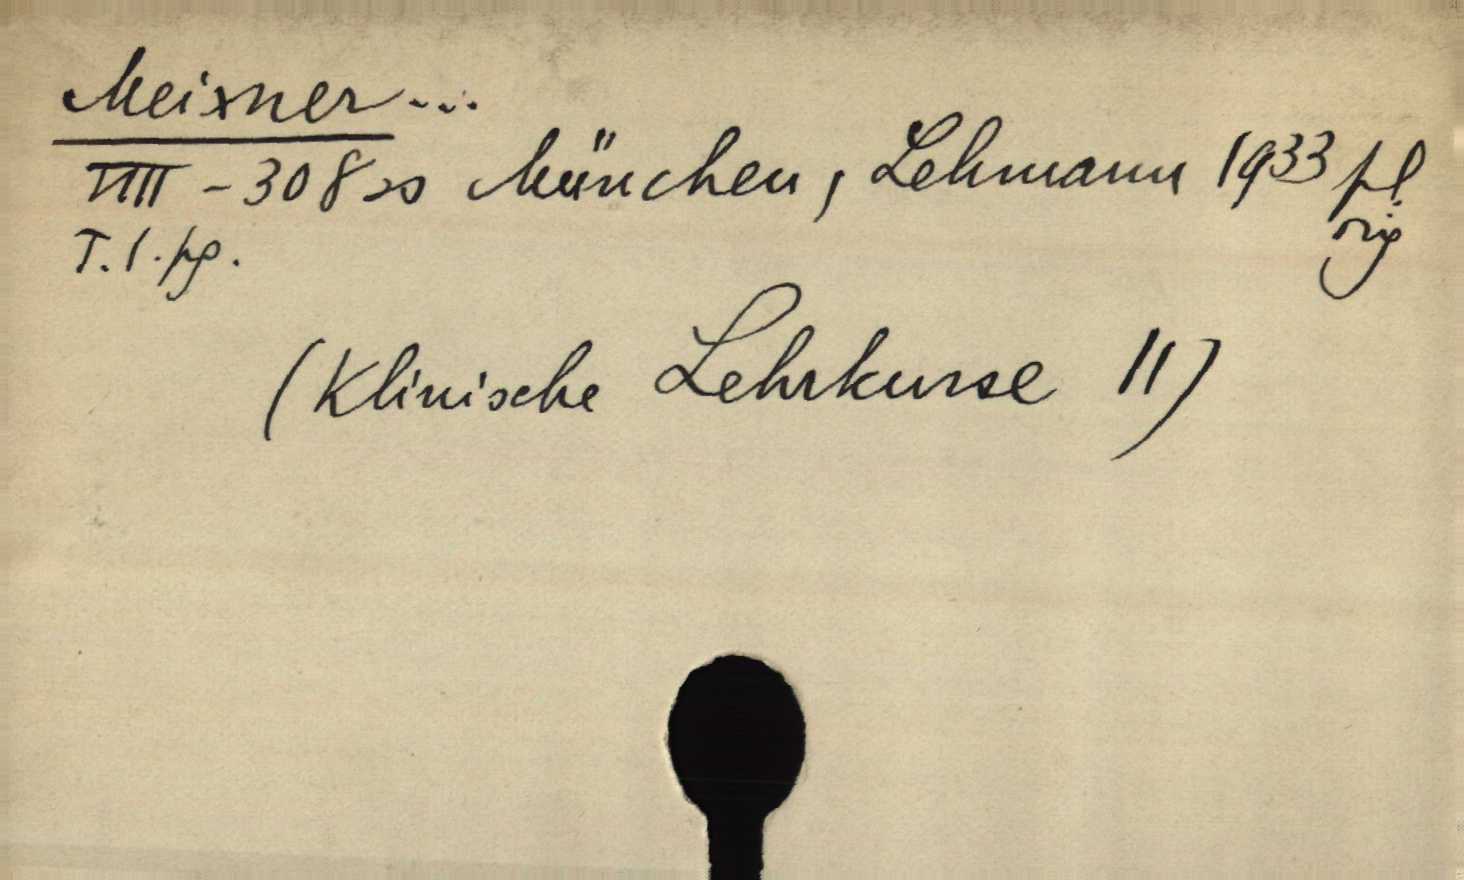 Meixner...
VIII - 308 ss München, Lehmann 1933 pl
orig
T. 1. pg.
(Klinische Lehrkurse 11)